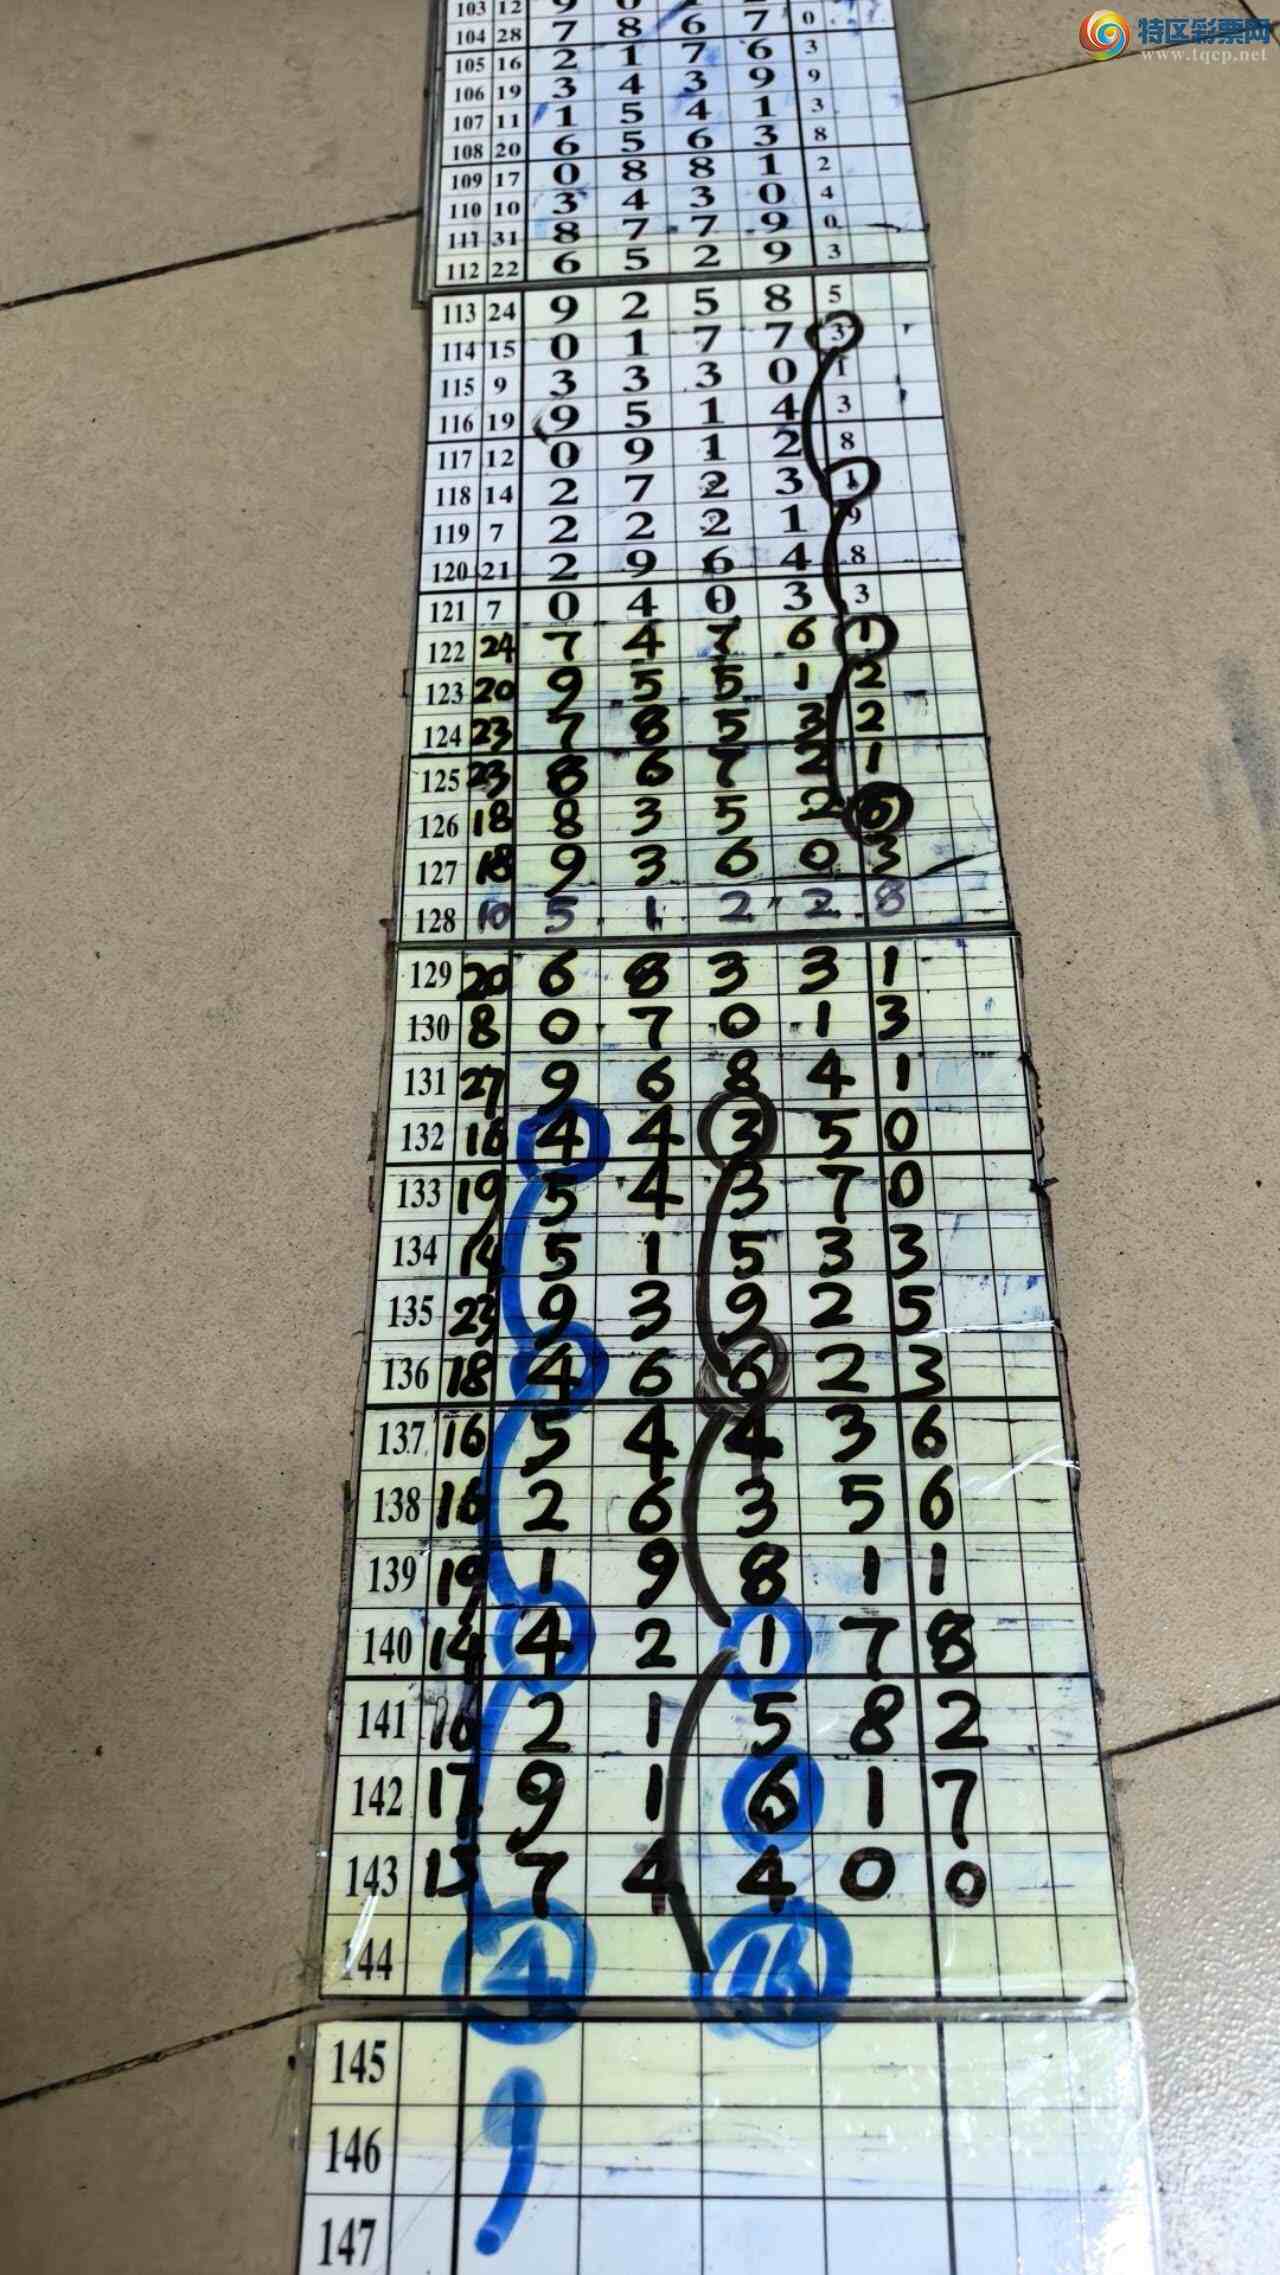 特区彩票网
www.tqcp.net
103 12 9 0
104 28 7 8 6 7 0
105 16 2 1 7 6 3
106 19 3 4 3 9 9
107 11 1 5 4 1 3
108 20 6 5 6 3 8
109 17 0 8 8 1 2
110 10 3 4 3 0 4
111 31 8 7 7 9 0
112 22 6 5 2 9 3
113 24 9 2 5 8 5
114 15 0 1 7 7 3
115 9 3 3 3 0 1
116 19 9 5 1 4 3
117 12 0 9 1 2 8
118 14 2 7 2 3 1
119 7 2 2 2 1 9
120 21 2 9 6 4 8
121 7 0 4 0 3 3
122 24 7 4 7 6 1
123 20 9 5 5 1 2
124 23 7 8 5 3 2
125 23 8 6 7 2 1
126 18 8 3 5 2 6
127 18 9 3 6 0 3
128 10 5 1 2 2 8
129 20 6 8 3 3 1
130 8 0 7 0 1 3
131 27 9 6 8 4 1
132 16 4 4 3 5 0
133 19 5 4 3 7 0
134 14 5 1 5 3 3
135 23 9 3 9 2 5
136 18 4 6 6 2 3
137 16 5 4 4 3 6
138 16 2 6 3 5 6
139 19 1 9 8 1 1
140 14 4 2 1 7 8
141 16 2 1 5 8 2
142 17 9 1 6 1 7
143 15 7 4 4 0 0
144 4 16
145
146
147